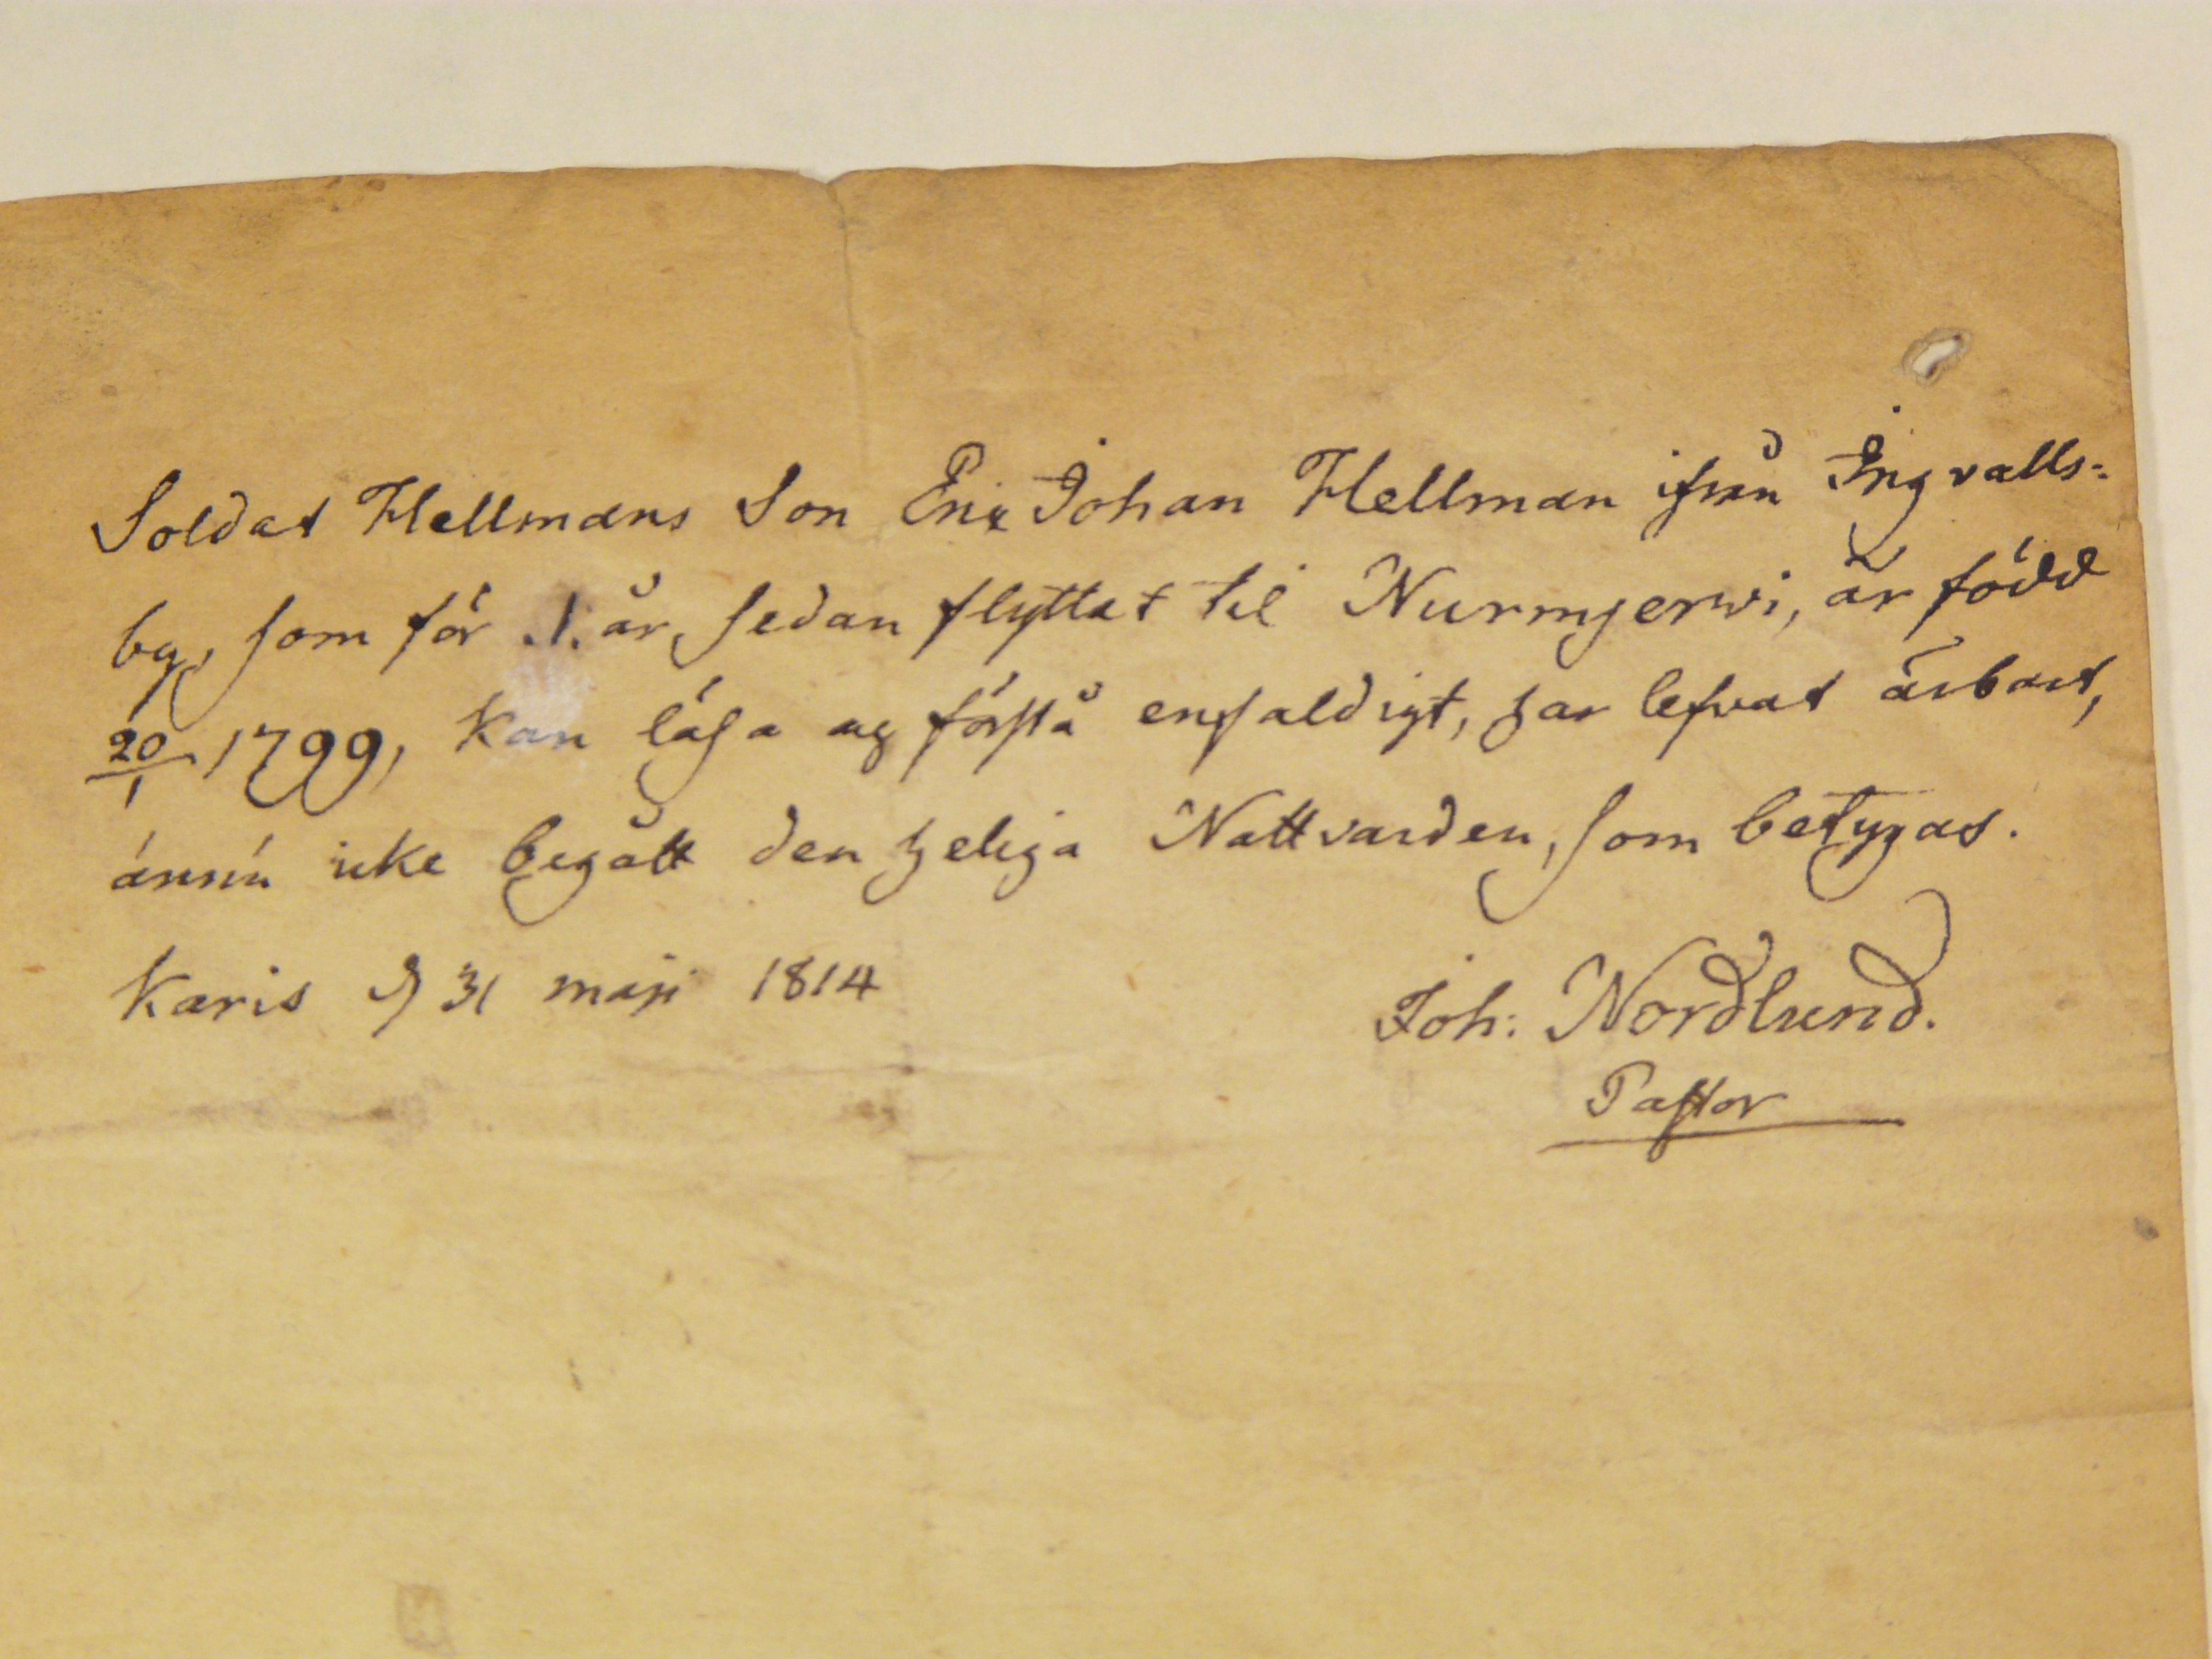 Soldat Hellmans Son Eric Johan Hellman ifrån Ingvalls-
by, som för 1. år sedan flyttat til Nurmjerwi, är född
20/1 1799, kan läsa og förstå enfaldigt, har lefvat ärbart,
ännú icke begått den heliga Nattvarden, som betygas.
Karis d 31 maji 1814
Joh: Nordlund.
Pastor